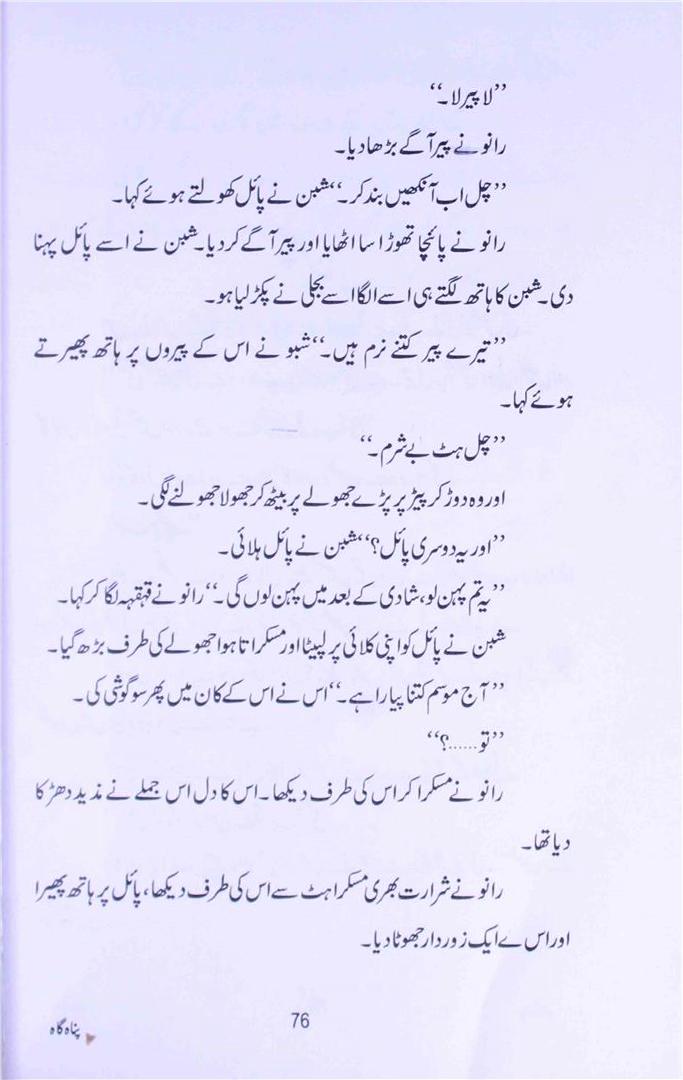 ’’لا پیر لا۔‘‘
رانو نے پیر آگے بڑھا دیا۔
’’چل اب آنکھیں بند کر۔‘‘ شبن نے پائل کھولتے ہوئے کہا۔
رانو نے پائنچا تھوڑا سا اٹھایا اور پیر آگے کر دیا۔ شبن نے اسے پائل پہنا
دی۔ شبن کا ہاتھ لگتے ہی اسے الگا اسے بجلی نے پکڑ لیا ہو۔
’’تیرے پیر کتنے نرم ہیں۔‘‘ شبو نے اس کے پیروں پر ہاتھ پھیرتے
ہوئے کہا۔
’’چل ہٹ بے شرم۔‘‘
اور وہ دوڑ کر پیڑ پر پڑے جھولے پر بیٹھ کر جھولا جھولنے لگی۔
’’اور یہ دوسری پائل؟‘‘ شبن نے پائل ہلائی۔
’’یہ تم پہن لو، شادی کے بعد میں پہن لوں گی۔‘‘ رانو نے قہقہہ لگا کر کہا۔
شبن نے پائل کو اپنی کلائی پر لپیٹا اور مسکراتا ہوا جھولے کی طرف بڑھ گیا۔
’’آج موسم کتنا پیارا ہے۔‘‘ اس نے اس کے کان میں پھر سوگوشی کی۔
’’تو......؟‘‘
رانو نے مسکرا کر اس کی طرف دیکھا۔ اس کا دل اس جملے نے مذید دھڑکا
دیا تھا۔
رانو نے شرارت بھری مسکراہٹ سے اس کی طرف دیکھا، پائل پر ہاتھ پھیرا
اور اس ے ایک زوردار جھوٹا دیا۔
76
پناہ گاہ